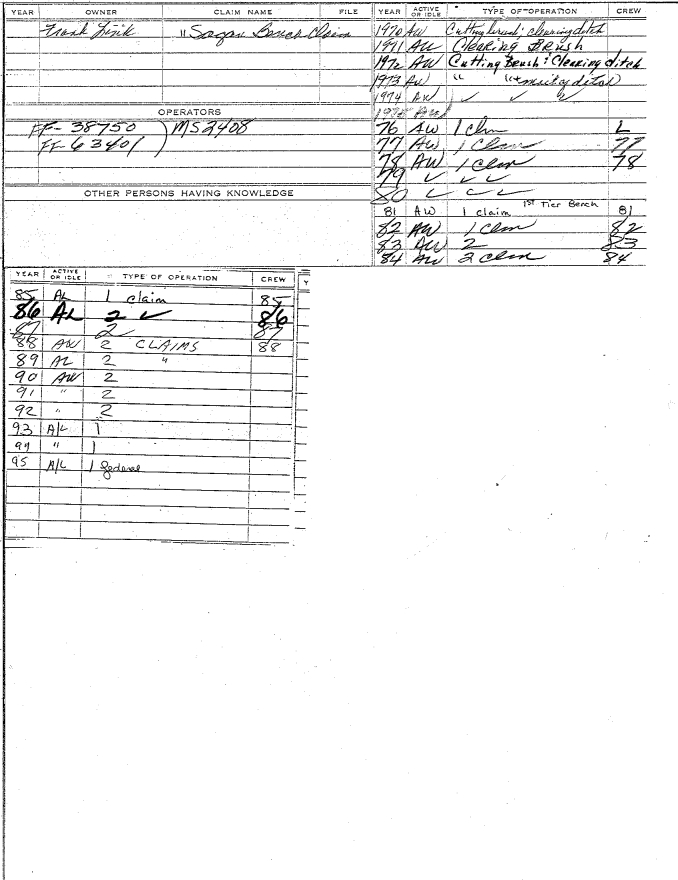 YEAR OWNER CLAIM NAME FILE
Frank Link "Sagan Bench Claim
OPERATORS
FF-38750 ) MS2408
FF-63401
OTHER PERSONS HAVING KNOWLEDGE
YEAR ACTIVE OR IDLE TYPE OF OPERATION CREW
1970 AW Cutting brush; clearing ditch
1971 AW Clearing BRush
1972 AW Cutting Brush & Clearing ditch
1973 AW " " ditch
1974 AW ✓ ✓
1975 AW
76 AW 1 Clm L
77 AW 1 Clm 77
78 AW 1 Clm 78
79 ✓ ✓ ✓
80 ✓ ✓ ✓
81 AW 1 claim 1ST Tier Bench 81
82 AW 1 Clm 82
83 AW 2 83
84 AW 2 Clm 84
YEAR ACTIVE OR IDLE TYPE OF OPERATION CREW
Y
85 AL 1 claim 85
86 AL 2 ✓ 86
87 2 87
88 AW 2 CLAIMS 88
89 AL 2 "
90 AW 2
91 " 2
92 " 2
93 A/L 1
94 " 1
95 A/L 1 federal